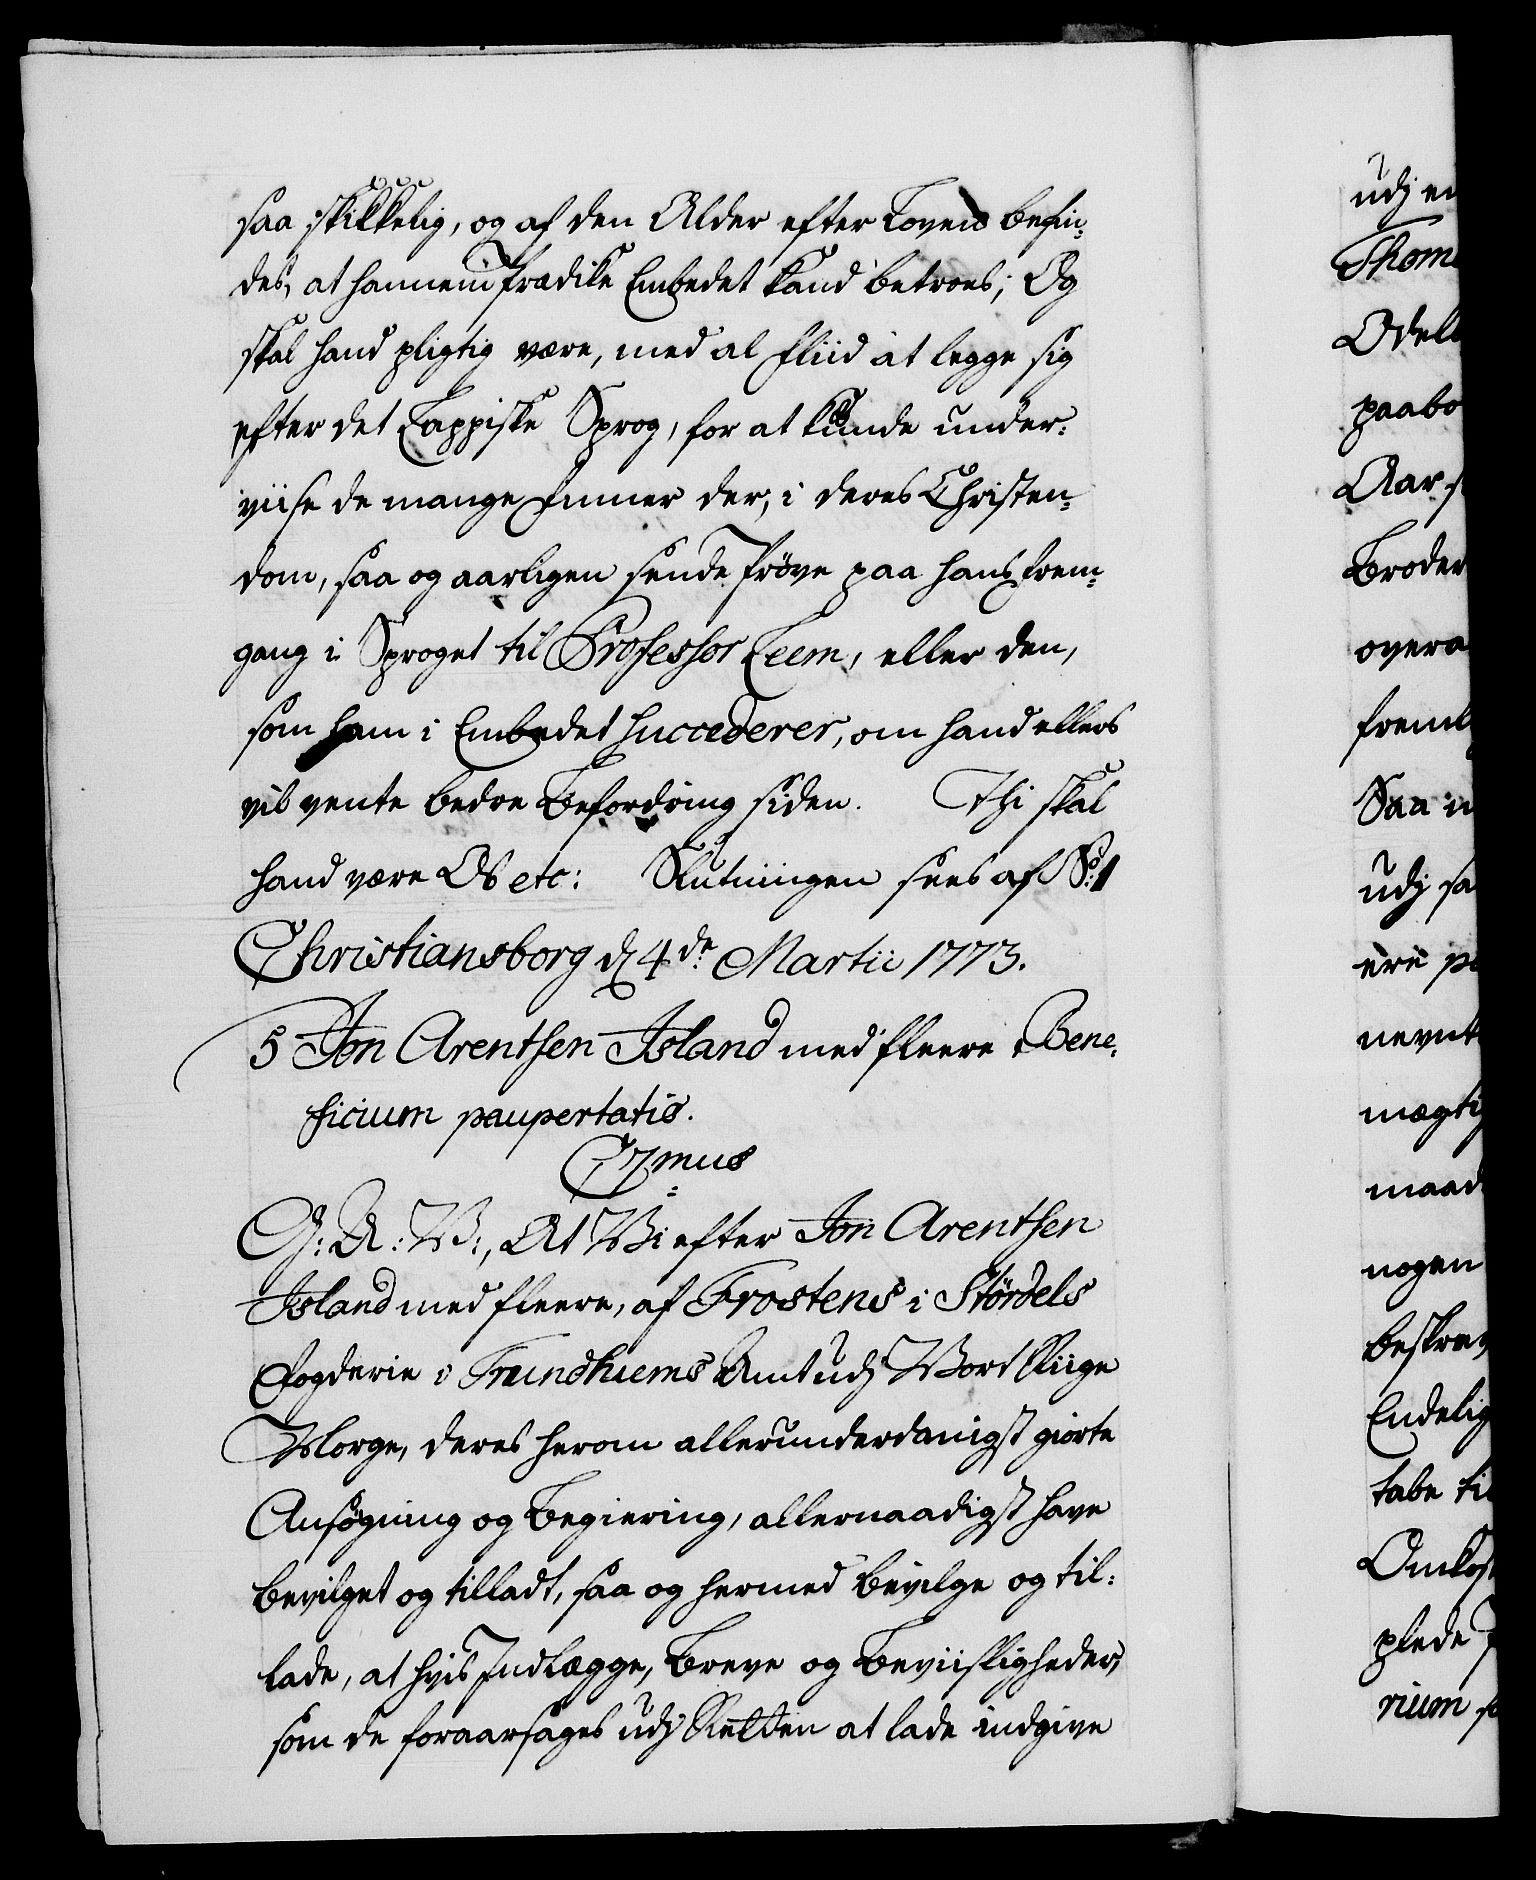 saa skikkelig, og af den Alder efter Loven befin-
des, at hannem Prædike Embedet kand betroes; Og
skal hand pligtig være, med al Fliid at legge sig
efter det Lappiske Sprog, for at kunde under-
viise de mange Finner der, i deres Christen-
dom, saa og aarligen sende Prøve paa hans Frem-
gang i Sproget til Professor Leem, eller den,
som ham i Embedet succederer, om hand ellers
vil vente bedre Befordring siden. Thi skal
hand være Os etc: Slutningen sees af No: 1
Christiansborg d 4de Martii 1773.
5 Jon Arentsen Island med fleere Bene-
ficium paupertatis.
C7mus
G: A: V:, At Vi efter Jon Arentsen
Island med fleere, af Frostens i Stördels
Fogderie i Trundhiems Amt udj Vort Riige
Norge, deres herom allerunderdanigst giorte
Ansøgning og Begiering, allernaadigst have
bevilget og tilladt, saa og hermed bevilge og til-
lade, at hvis Indlægge, Breve og Beviisligheder,
som de foraarsages udj Retten at lade indgive
udj en
Thom
Odels
paabo
Aar
Broder
overa
freml
Saa
udj sa
ere
nevnt
mægtig
maad
nogen
beskrev
Endelig
tabe til
Omkost
plede
rium